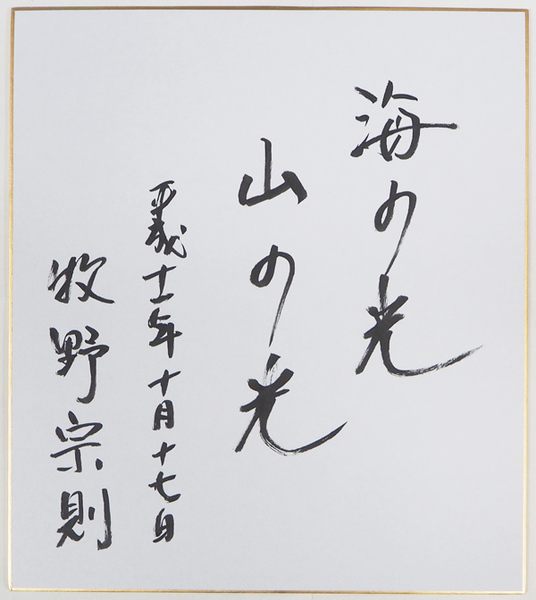 海の光
山の光
平成十一年十月十七日
牧野宗則